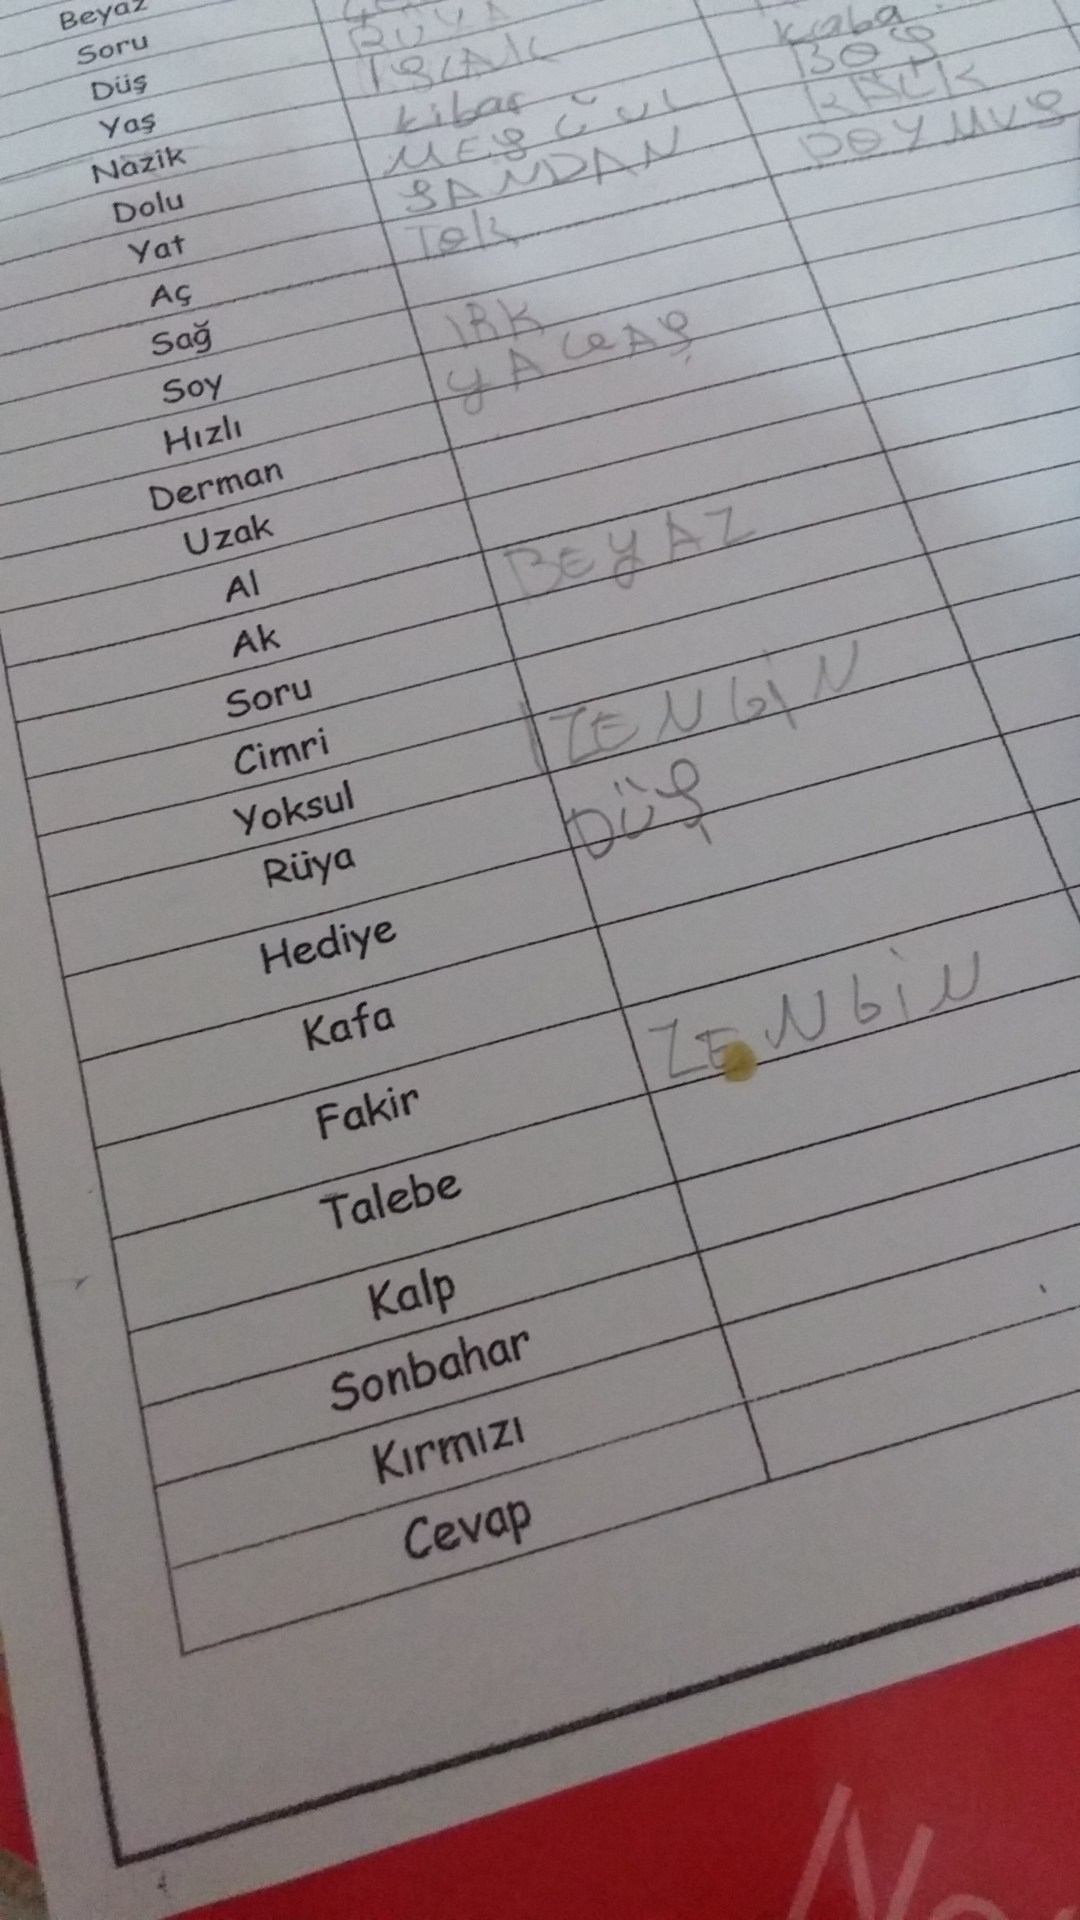 Beyaz
Soru
Düş RÜYA
Yaş ISLAK
Nazik kibar kaba
Dolu MEŞĞUL BOŞ
Yat ŞANDAN KALK
Aç Tok DOYMUŞ
Sağ
Soy IRK
Hızlı YAVAŞ
Derman
Uzak
Al
Ak BEYAZ
Soru
Cimri
Yoksul ZENGİN
Rüya DÜŞ
Hediye
Kafa
Fakir ZENGİN
Talebe
Kalp
Sonbahar
Kırmızı
Cevap